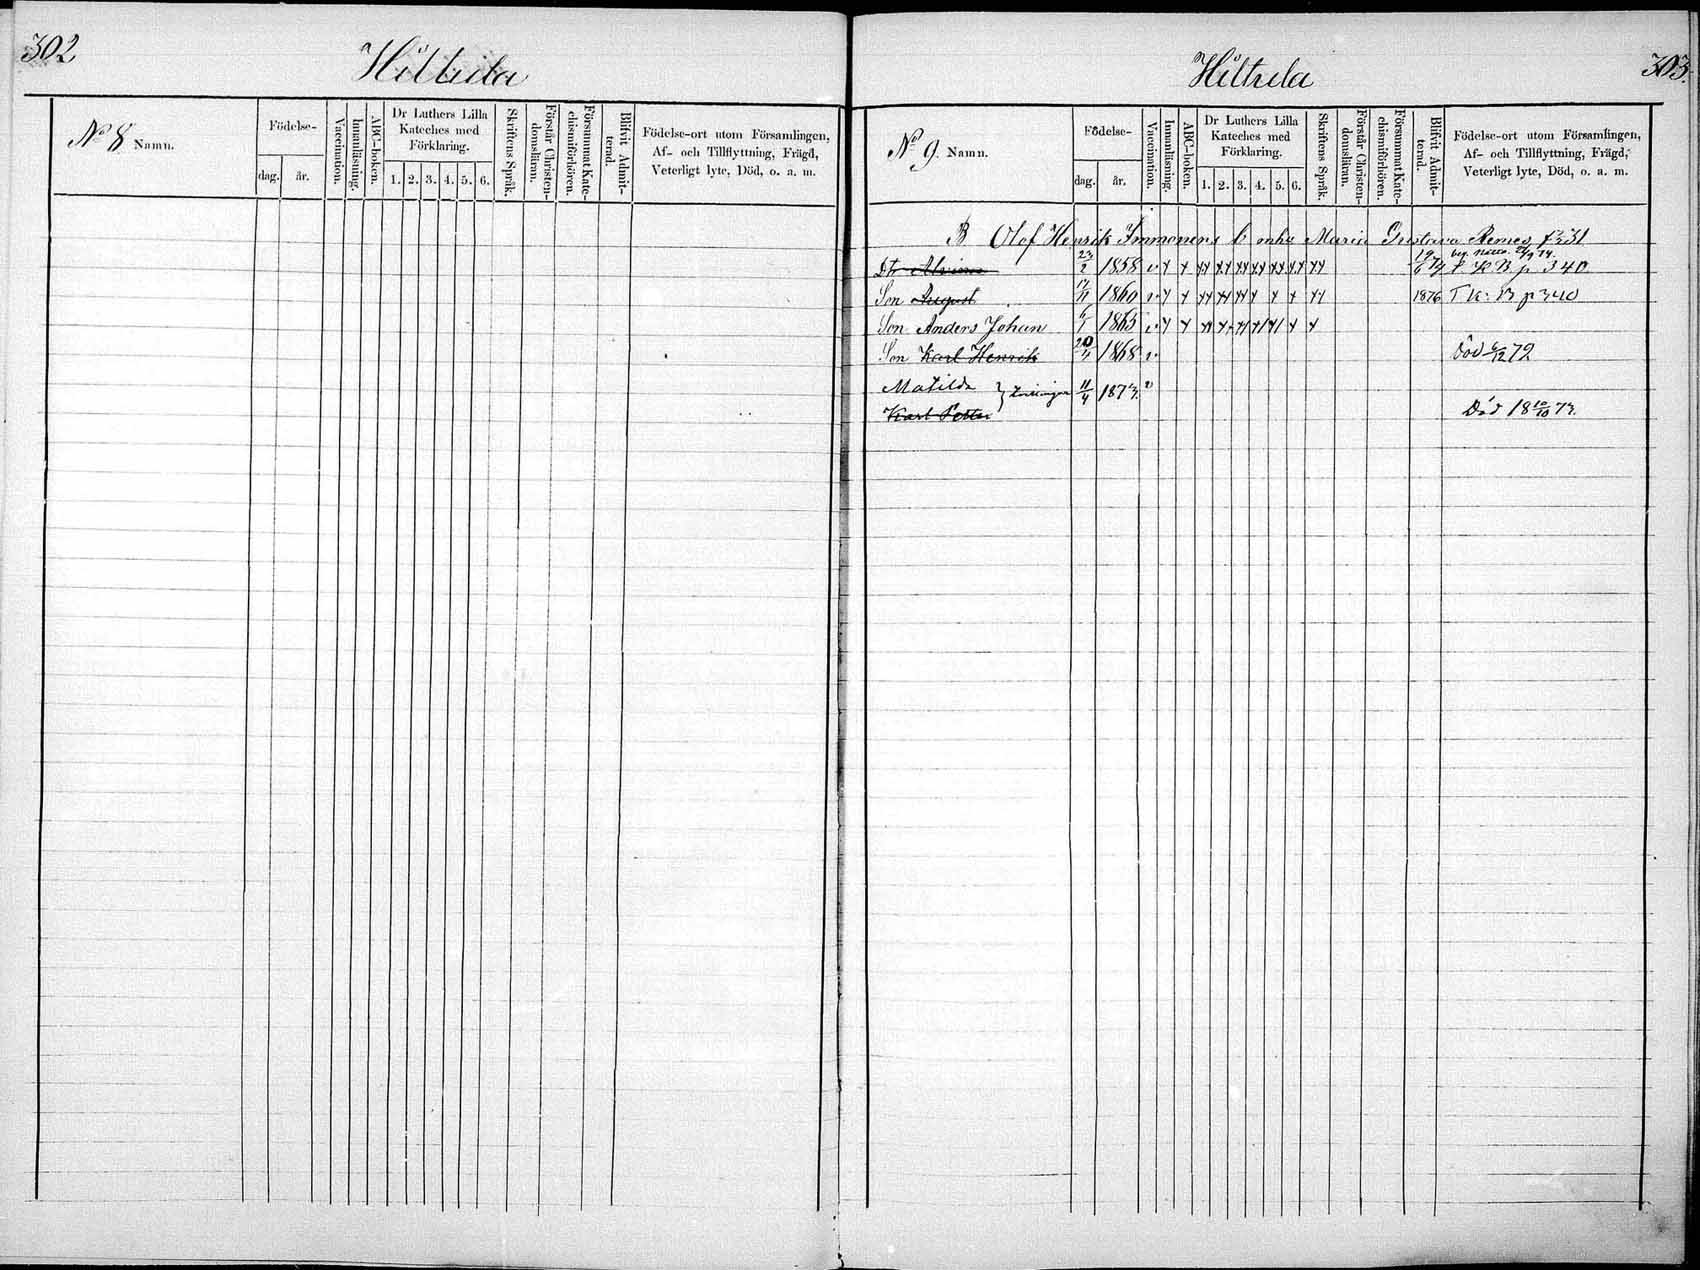 302
Hiltula
No 8 Namn.
Födelse-
dag.
år.
Vaccination.
Innanläsning.
ABC-boken.
Dr Luthers Lilla
Kateches med
Förklaring.
1. 2. 3. 4. 5. 6.
Skriftens Språk.
Förstår Christen-
domsläran.
Försummat Kate-
chismiförhören.
Blifvit Admit-
terad.
Födelse-ort utom Församlingen,
Af- och Tillflyttning, Frägd,
Veterligt lyte, Död, o. a. m.
303.
Hiltula
No 9. Namn.
Födelse-
dag.
år.
Vaccination.
Innanläsning.
ABC-boken.
Dr Luthers Lilla
Kateches med
Förklaring.
1. 2. 3. 4. 5. 6.
Skriftens Språk.
Förstår Christen-
domsläran.
Försummat Kate-
chismiförhören.
Blifvit Admit-
terad.
Födelse-ort utom Församlingen,
Af- och Tillflyttning, Frägd,
Veterligt lyte, Död, o. a. m.
B Olof Henrik Immonens b Maria Gustava Remes
Dtr Alvina 23/2 1858 K B p 340
Son August 1860 1876 p 340
Son Anders Johan 6/1 1865
Son Karl Henrik 1868 död 6/12 72
Matilda 11/4 1873.
Karl Petter Död 18 10/10 73.